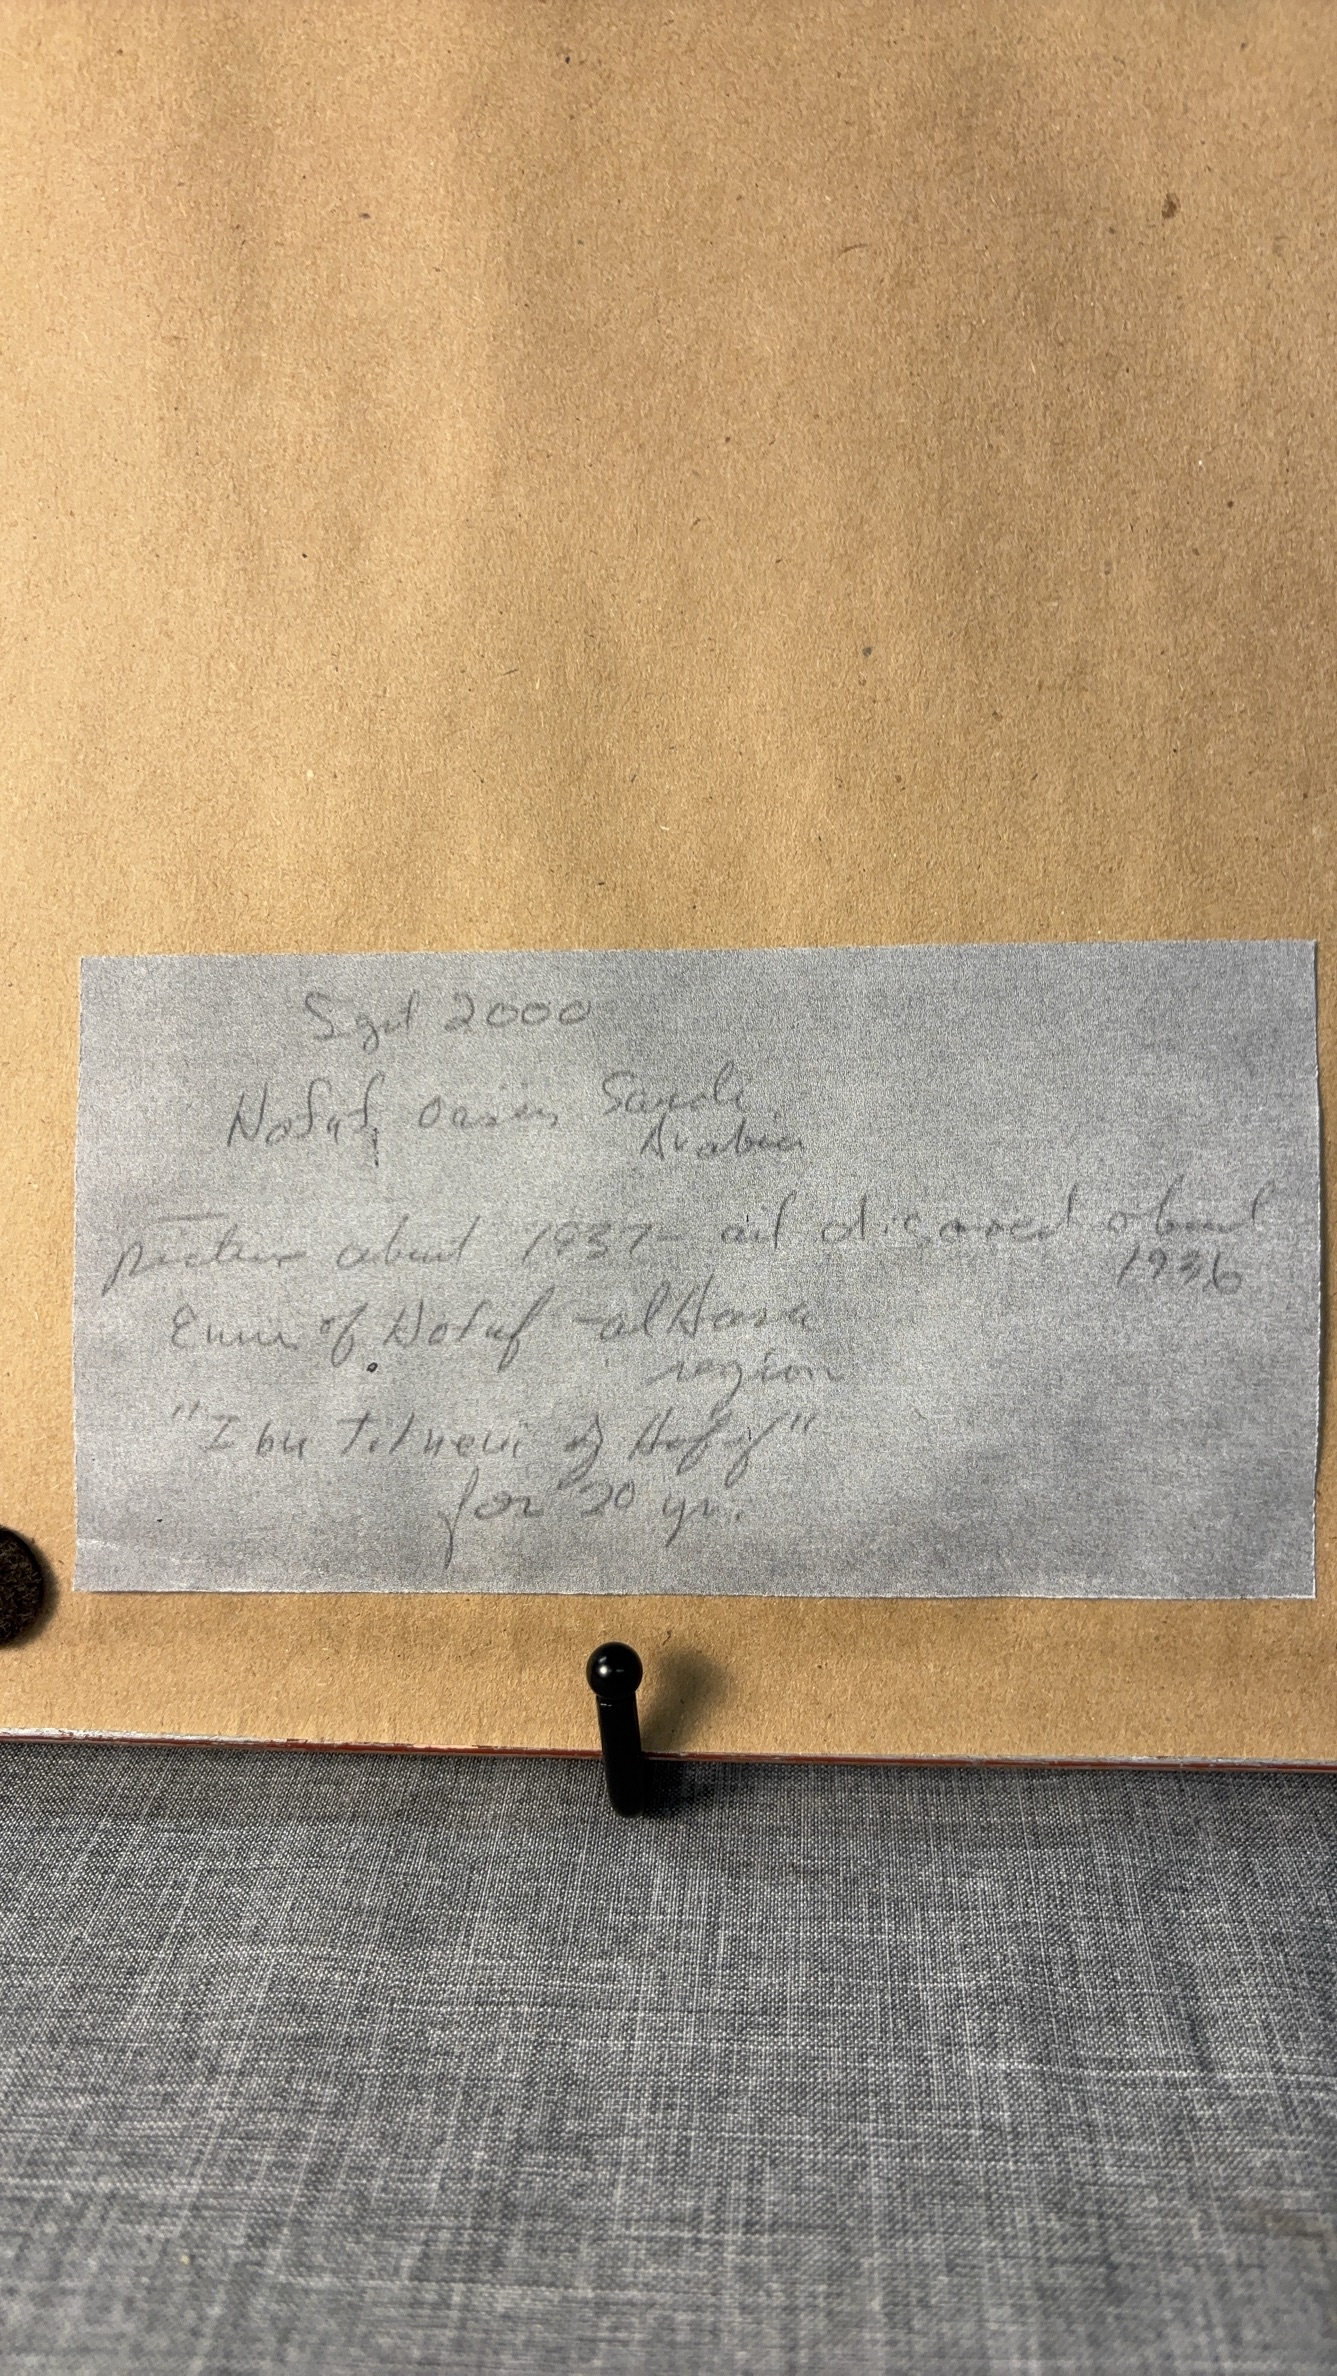 Sept 2000
Hofuf, Oasis, Saudi
Arabia
Picture about 1937 - oil discovered about
1936
Emir of Hofuf - al Hasa
region
"Ibn of Hofuf"
for 20 yr.